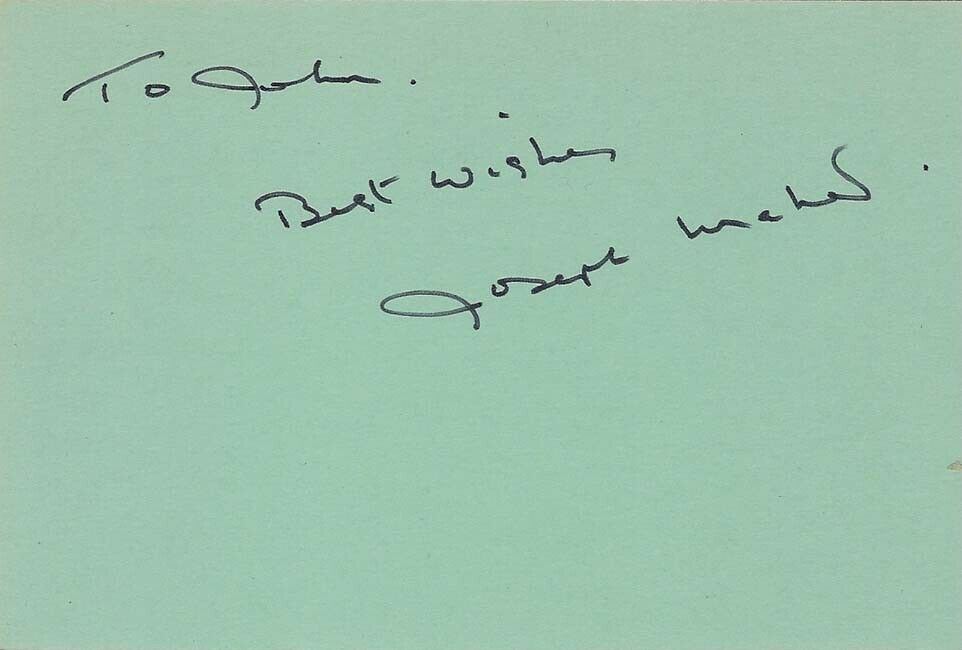 To John.
Best Wishes
Joseph Maher.